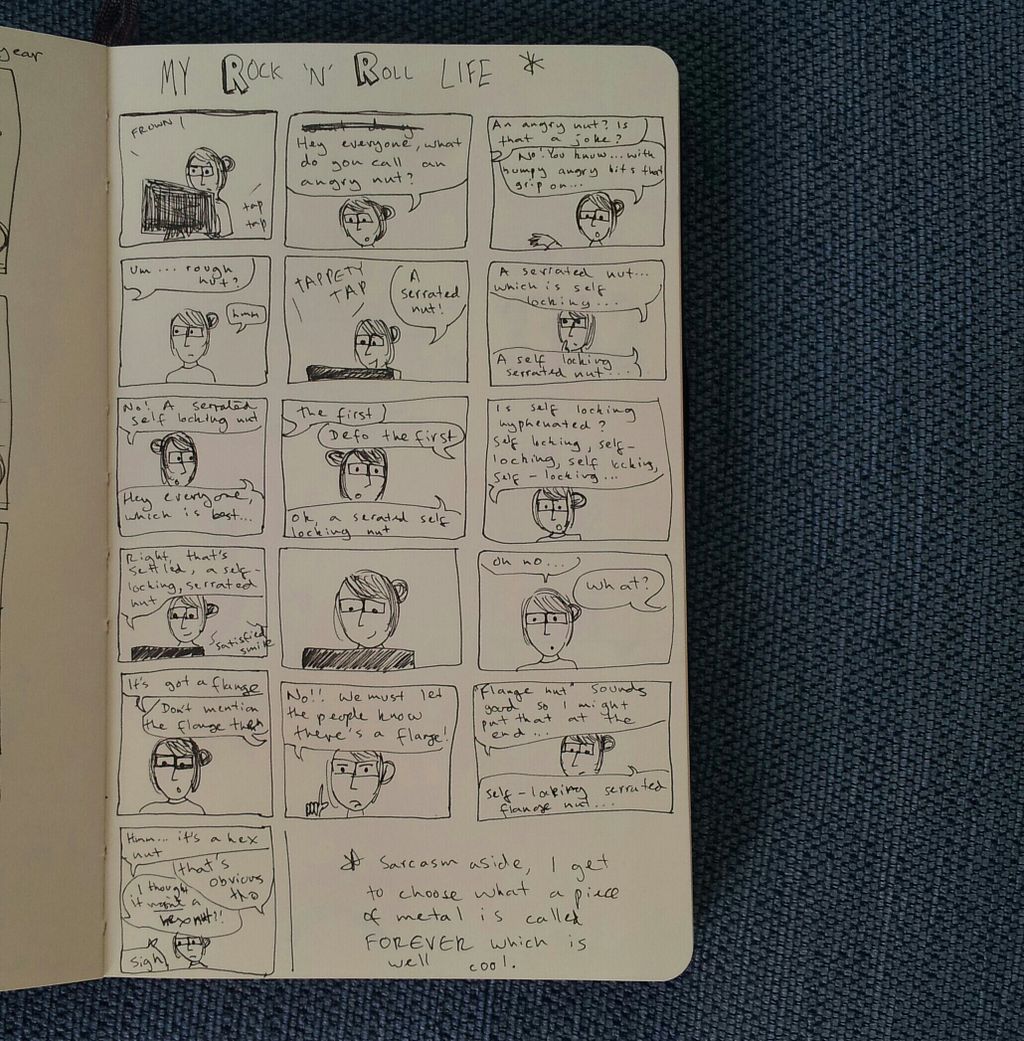 year
MY ROCK 'N' ROLL LIFE *
FROWN!
tap
tap
Hey everyone, what
do you call an
angry nut?
An angry nut? Is
that a joke?
No! You know... with
bumpy angry bits that
grip on...
Um... rough
nut?
hmm
TAPPETY
TAP
A
serrated
nut!
A serrated nut...
which is self
locking...
A self locking
serrated nut...
No! A serrated
self locking nut
Hey everyone,
which is best...
The first
Defo the first
OK, a serated self
locking nut
Is self locking
hyphenated?
Self locking, self-
locking, self locking,
self-locking...
Right, that's
settled, a self-
locking, serrated
nut
satisfied
smile
Oh no...
What?
It's got a flange
Don't mention
the flange then
No!! We must let
the people know
there's a flange!
"Flange nut" sounds
good so I might
put that at the
end...
self-locking serrated
flange nut...
Hmm... it's a hex
nut
that's
obvious
tho
I thought
it wasn't a
hex nut!!
sigh
* Sarcasm aside, I get
to choose what a piece
of metal is called
FOREVER which is
well cool.